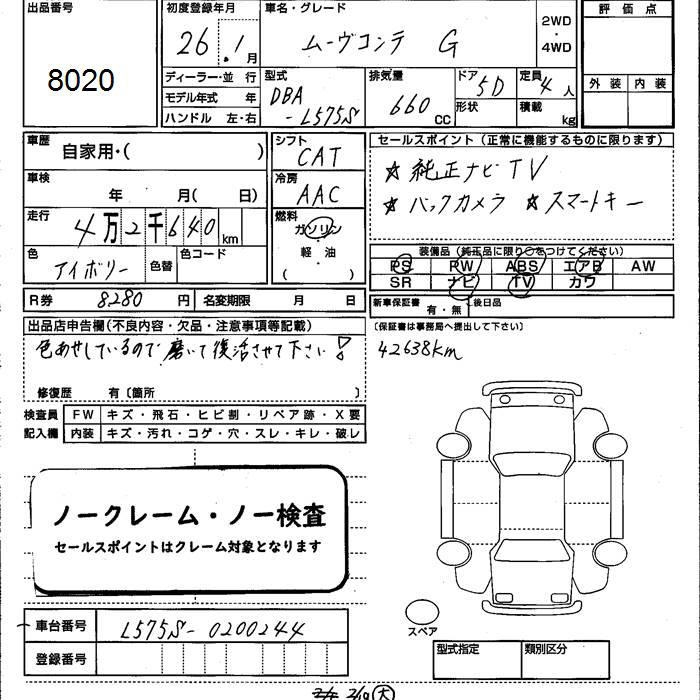 出品番号
8020
初度登録年月
26.1月
車名・グレード
ムーヴコンテ G
2WD
・
4WD
評価点
外装 内装
ディーラー・並行
モデル年式 年
ハンドル 左・右
型式
DBA
-L575S
排気量
660
CC
ドア
5D
形状
定員
4人
積載
kg
車歴
自家用・( )
シフト
CAT
車検
年 月( 日)
冷房
AAC
走行
4万2千640km
燃料
ガソリン
軽油
( )
色
アイボリー
色替
色コード
セールスポイント(正常に機能するものに限ります)
☆ 純正ナビTV
☆ バックカメラ ☆ スマートキー
装備品(純正品に限り○をつけてください)
PS PW ABS エアB AW
SR ナビ TV カワ
R券 8280円 名変期限 月 日
新車保証書
有・無
後日品
(保証書は事務局へ提出して下さい)
42638km
出品店申告欄(不良内容・欠品・注意事項等記載)
色あせしているので磨いて復活させて下さい!
修復歴 有〔箇所 〕
検査員
記入欄
FW キズ・飛石・ヒビ割・リペア跡・X要
内装 キズ・汚れ・コゲ・穴・スレ・キレ・破レ
ノークレーム・ノー検査
セールスポイントはクレーム対象となります
車台番号
L575S-0200244
登録番号
スペア
型式指定
類別区分